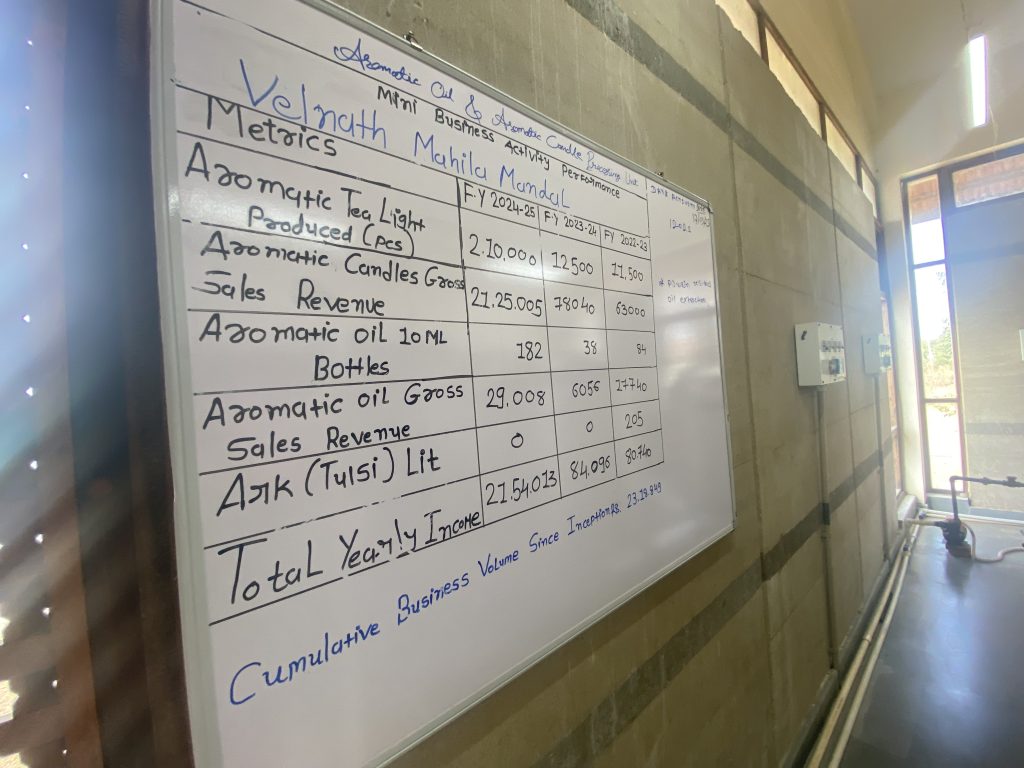 Aromatic Oil & Aromatic Candle Processing Unit
Mini Business Activity Performance
Velnath Mahila Mandal
Metrics F.Y 2024-25 F.Y 2023-24 FY 2022-23
Aromatic Tea Light
Produced (pcs) 2.10.000 12500 11.500
Aromatic Candles Gross
Sales Revenue 21.25.005 78040 63000
Aromatic oil 10 ML
Bottles 182 38 84
Aromatic oil Gross
Sales Revenue 29.008 6056 17740
Ark (Tulsi) Lit 0 0 205
Total Yearly Income 21.54.013 84.096 80.740
Cumulative Business Volume Since Inception Rs. 23.18.849
oil extraction